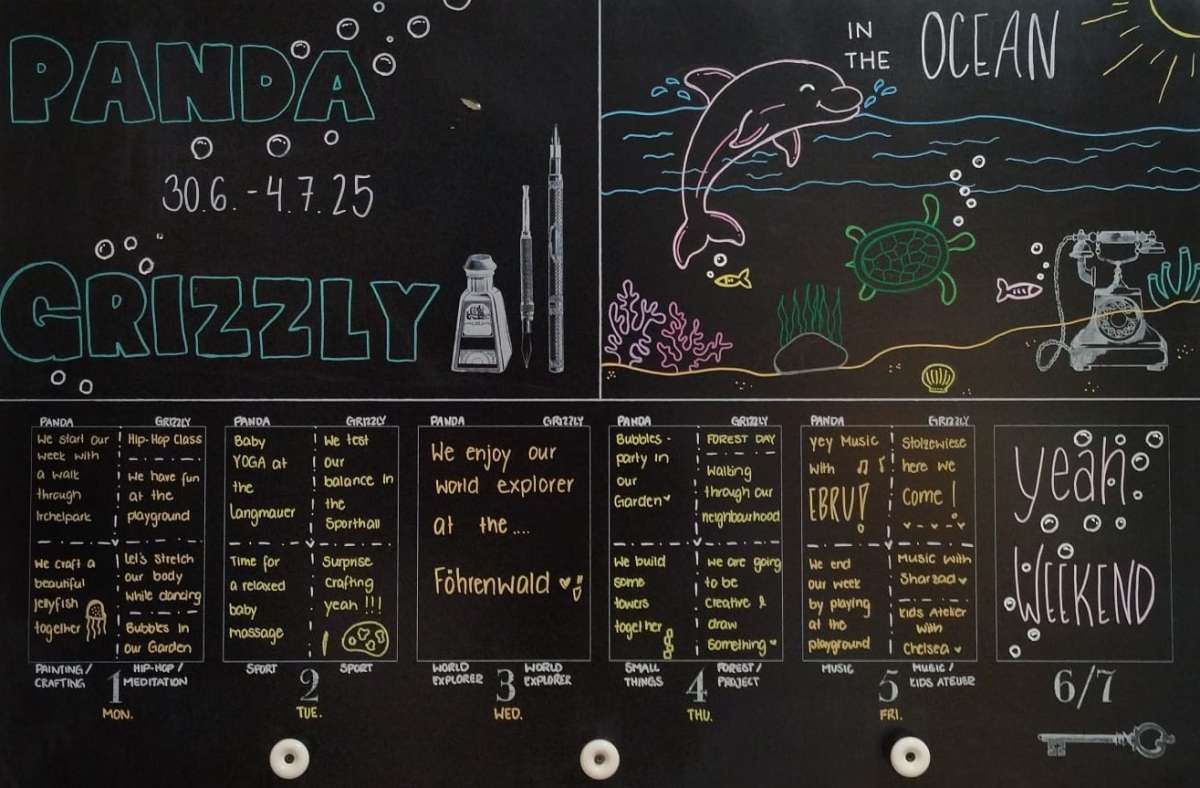 PANDA
30.6. - 4.7.25
GRIZZLY
IN
THE
OCEAN
PANDA
GRIZZLY
We start our
week with
a walk
through
Irchelpark
Hip-Hop Class
We have fun
at the
playground
We craft a
beautiful
jellyfish
together
Let's Stretch
our body
while dancing
Bubbles in
our Garden
PAINTING/
CRAFTING
HIP-HOP/
MEDITATION
1
MON.
PANDA
GRIZZLY
Baby
YOGA at
the
Langmauer
We test
our
balance in
the
Sporthall
Time for
a relaxed
baby
massage
Surprise
crafting
yeah !!!
SPORT
SPORT
2
TUE.
PANDA
GRIZZLY
We enjoy our
world explorer
at the....
Föhrenwald
WORLD
EXPLORER
WORLD
EXPLORER
3
WED.
PANDA
GRIZZLY
Bubbles -
party in
our
Garden
FOREST DAY
Walking
through our
neighbourhood
We build
some
towers
together
We are going
to be
creative &
draw
something
SMALL
THINGS
FOREST/
PROJECT
4
THU.
PANDA
GRIZZLY
yey Music
with
EBRU!
Stolzewiese
here we
come!
We end
our week
by playing
at the
playground
Music with
Sharzad
Kids Atelier
with
Chelsea
MUSIC
MUSIC/
KIDS ATELIER
5
FRI.
yeah
WEEKEND
6/7